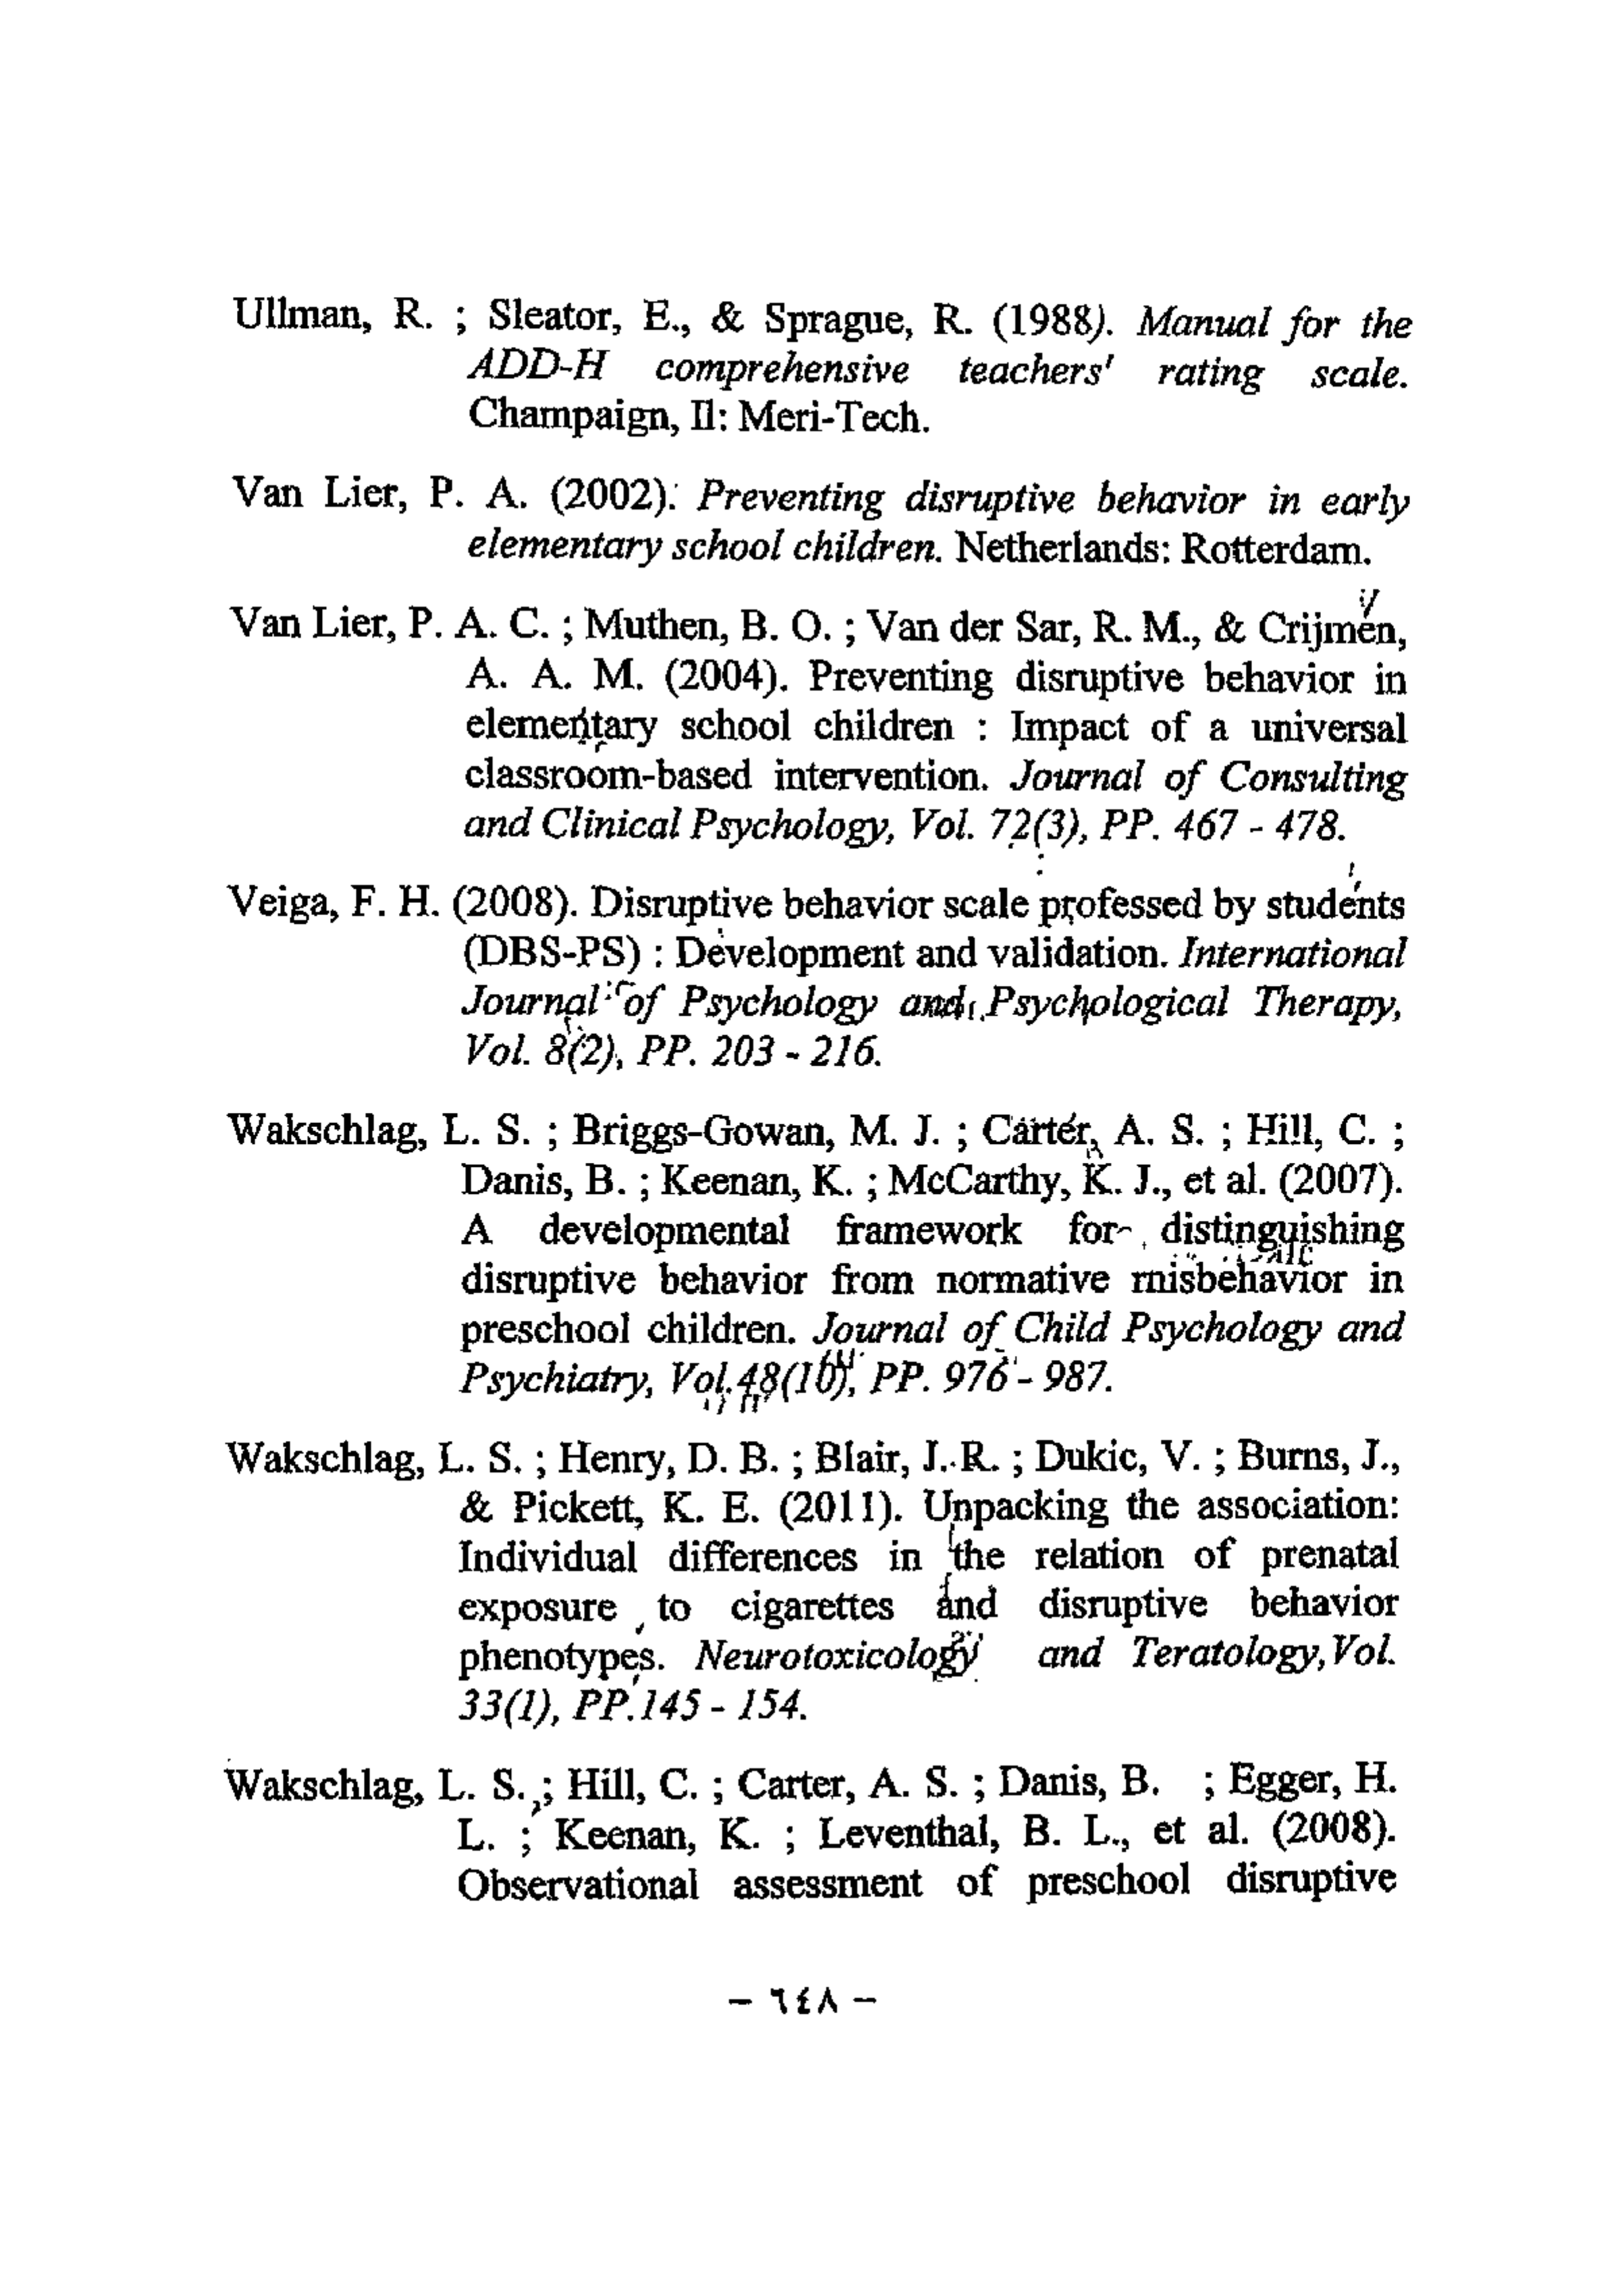 Ullman, R. ; Sleator, E., & Sprague, R. (1988). Manual for the
ADD-H comprehensive teachers' rating scale.
Champaign, Il: Meri-Tech.
Van Lier, P. A. (2002). Preventing disruptive behavior in early
elementary school children. Netherlands: Rotterdam.
Van Lier, P. A. C. ; Muthen, B. O. ; Van der Sar, R. M., & Crijmen,
A. A. M. (2004). Preventing disruptive behavior in
elementary school children : Impact of a universal
classroom-based intervention. Journal of Consulting
and Clinical Psychology, Vol. 72(3), PP. 467 - 478.
Veiga, F. H. (2008). Disruptive behavior scale professed by students
(DBS-PS) : Development and validation. International
Journal of Psychology and Psychological Therapy,
Vol. 8(2), PP. 203 - 216.
Wakschlag, L. S. ; Briggs-Gowan, M. J. ; Carter, A. S. ; Hill, C. ;
Danis, B. ; Keenan, K. ; McCarthy, K. J., et al. (2007).
A developmental framework for distinguishing
disruptive behavior from normative misbehavior in
preschool children. Journal of Child Psychology and
Psychiatry, Vol.48(10), PP. 976 - 987.
Wakschlag, L. S. ; Henry, D. B. ; Blair, J. R. ; Dukic, V. ; Burns, J.,
& Pickett, K. E. (2011). Unpacking the association:
Individual differences in the relation of prenatal
exposure to cigarettes and disruptive behavior
phenotypes. Neurotoxicology and Teratology, Vol.
33(1), PP.145 - 154.
Wakschlag, L. S. ; Hill, C. ; Carter, A. S. ; Danis, B. ; Egger, H.
L. ; Keenan, K. ; Leventhal, B. L., et al. (2008).
Observational assessment of preschool disruptive
– ٦٤٨ –